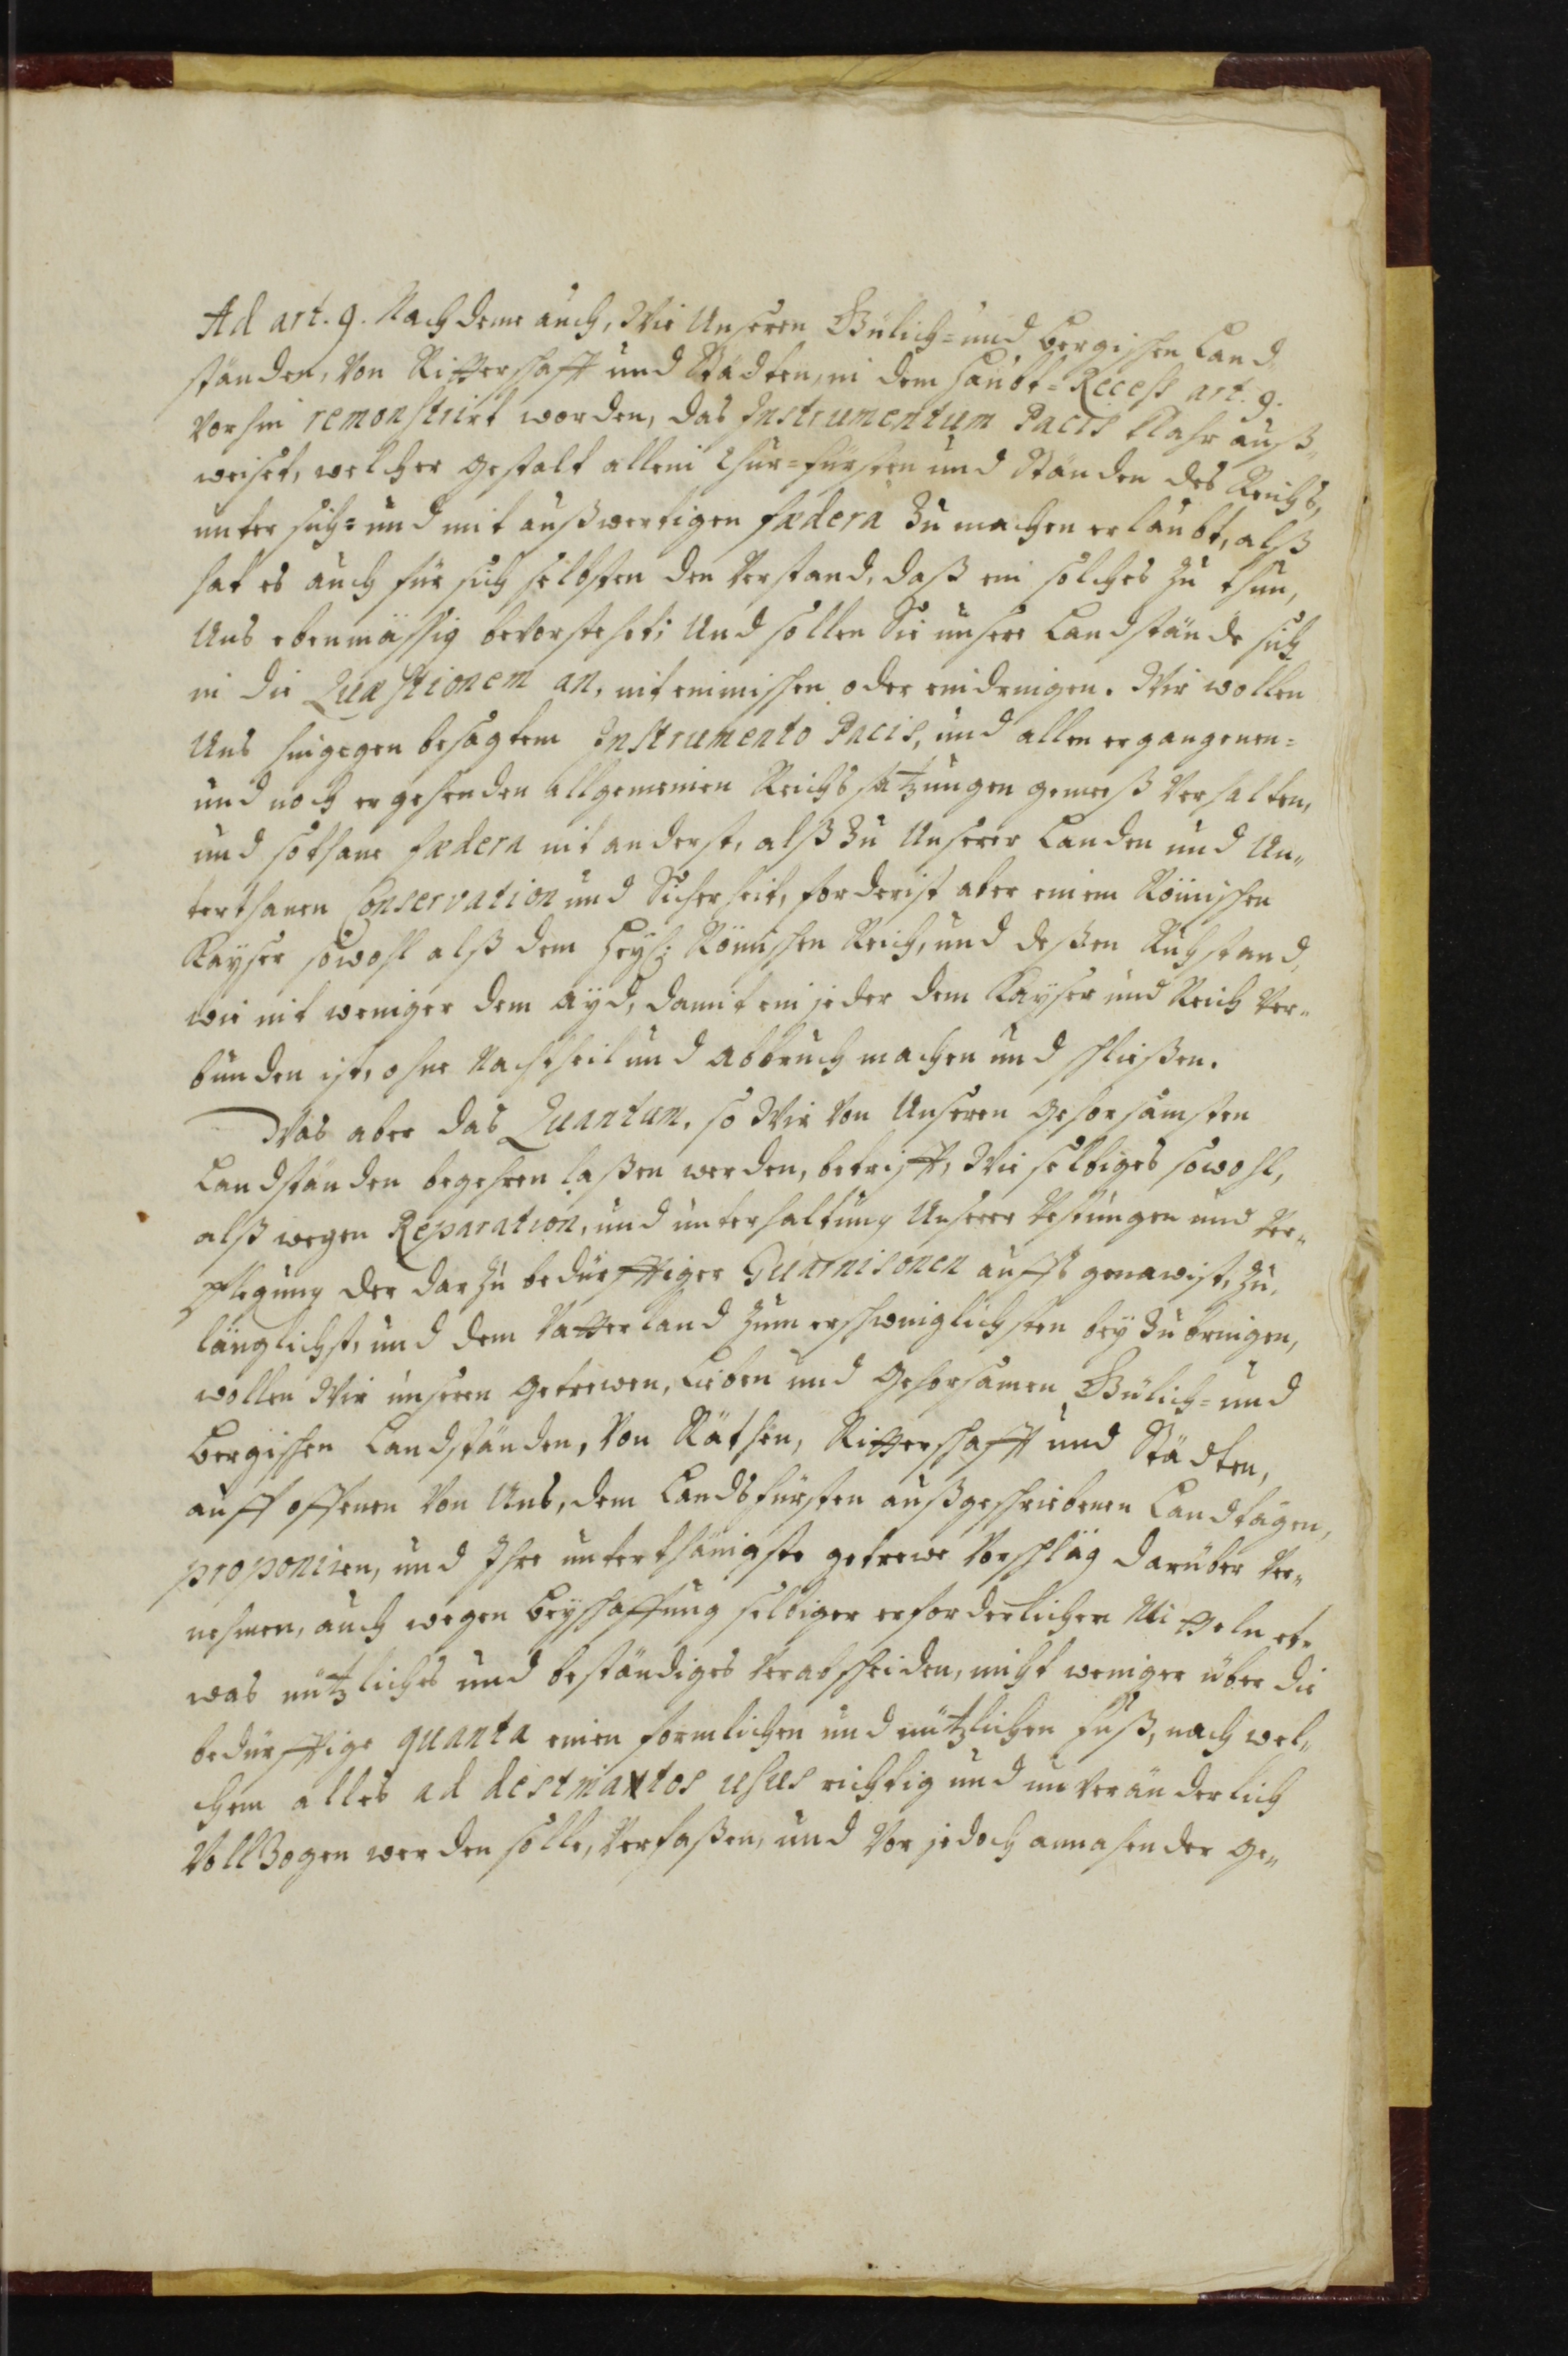 Ad art. 9. Nachdeme auch, Wie Unseren Gülich- und Bergischen Land-
ständen, Von Ritterschafft und Städten, in dem Haubt-Recess art. 9.
Vorhin remonstrirt worden, das Instrumentum Pacis klahr auß-
weiset, welcher gestalt allein Chur-fürsten und Ständen des Reichs,
unter sich- und mit außwertigen fædera zu machen erlaubt, alß
hat es auch für sich selbsten den Verstand, daß ein solches zu thun,
Uns ebenmässig bevorstehet; Und sollen Sie unsere Landstände sich
in die Quæstionem an, nit einmischen oder eindringen. Wir wollen
Uns hingegen besagtem Instrumento Pacis, und allen ergangenen-
und noch ergehenden allgemeinen Reichssatzungen gemeeß Verhalten,
und sothane fædera nit anderst, alß zu Unserer Landen und Un-
terthanen Conservation und Sicherheit, forderist aber einem Römischen
Kayser sowohl alß dem Heyl: Römischen Reich, und deßen Ruhstand,
wie nit weniger dem ayd, damit ein jeder dem Kayser und Reich Ver-
bunden ist, ohne Nachtheil und Abbruch machen und schließen.
Was aber das Quantum, so Wir Von Unseren gehorsamsten
Landständen begehren laßen werden, betrifft, Wie selbiges sowohl,
alß wegen Reparation, und unterhaltung Unserer Vestungen und Ver-
pflegung der darzu bedürfftiger Guarnisonen auffs genawist, zu-
länglichst, und dem Vatterland zum erschwinglichsten bey zu bringen,
wollen Wir unseren Getrewen, Lieben und Gehorsamen Gülich- und
Bergischen Landständen, Von Räthen, Ritterschafft und Städten,
auff offenen Von Uns, dem Landsfürsten außgeschriebenen Landtägen,
proponiren, und Ihre unterthänigste getrewe Vorschläg darüber Ver-
nehmen, auch wegen Beyschaffung selbiger erforderlicher Mitteln et-
was nützliches und beständiges Verabscheiden, nicht weniger über die
bedürfftige quanta einen formlichen und nützlichen fuß, nach wel-
chem alles ad destinatos usus richtig und unveränderlich
Vollzogen werden solle, Verfaßen, und Vor jedoch annahender ge-